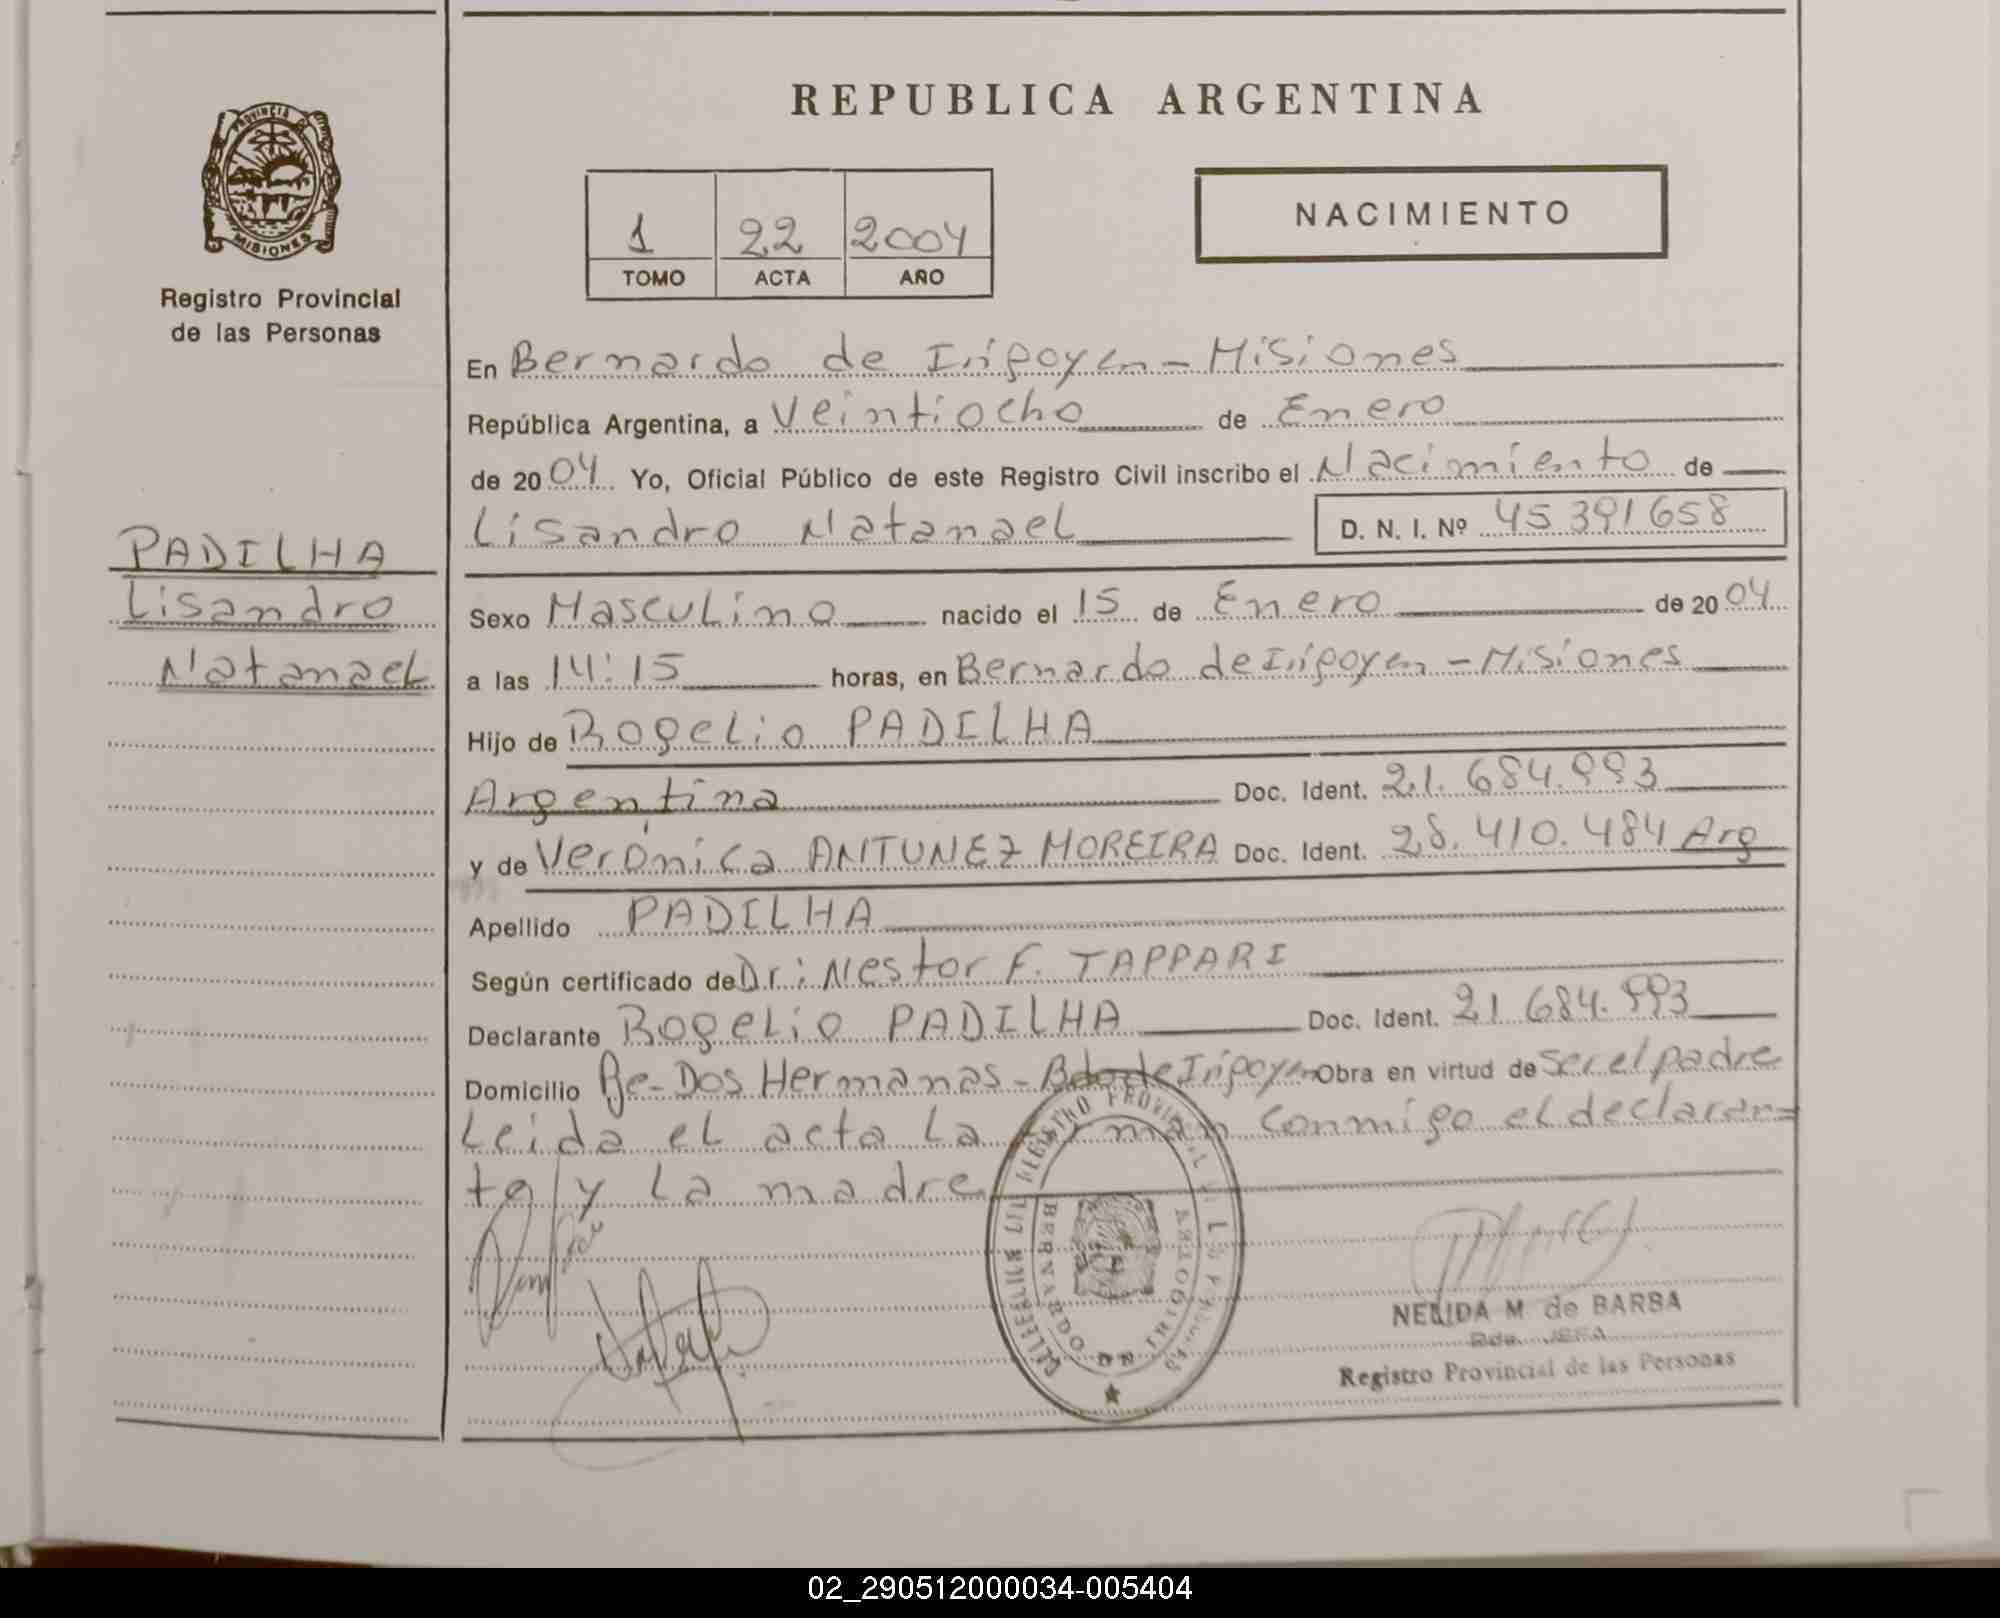 REPUBLICA ARGENTINA
PROVINCIA DE
MISIONES
Registro Provincial
de las Personas
NACIMIENTO
1 22 2004
TOMO ACTA AÑO
En Bernardo de Irigoyen - Misiones
República Argentina, a Veintiocho de Enero
de 2004 Yo, Oficial Público de este Registro Civil inscribo el Nacimiento de
Lisandro Natanael D. N. I. Nº 45391658
PADILHA
Lisandro
Natanael
Sexo Masculino nacido el 15 de Enero de 2004
a las 14:15 horas, en Bernardo de Irigoyen - Misiones
Hijo de Rogelio PADILHA
Argentina Doc. Ident. 21.684.993
y de Verónica ANTUNEZ MOREIRA Doc. Ident. 28.410.484 Arg
Apellido PADILHA
Según certificado de Dr: Nestor F. TAPPARI
Declarante Rogelio PADILHA Doc. Ident. 21 684.993
Domicilio Pje-Dos Hermanas - Bdo de Irigoyen Obra en virtud de ser el padre
Leida el acta La firman conmigo el declaran=
te/y La madre
REGISTRO PROVINCIAL DE LAS PERSONAS
BERNARDO DE IRIGOYEN
NELIDA M. de BARBA
JEFA
Registro Provincial de las Personas
02_290512000034-005404